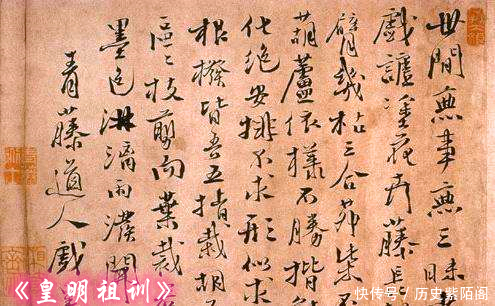 世間無事無三昧
戲謔塗花卉藤長
臂幾枯三合茅柴
葫蘆依樣不勝揩
化絕安排不求形似求
根撥皆吾五指栽胡
區々枝剪而葉裁
墨色淋漓雨撥開
青藤道人戲
《皇明祖训》
快传号 / 历史紫陌阁